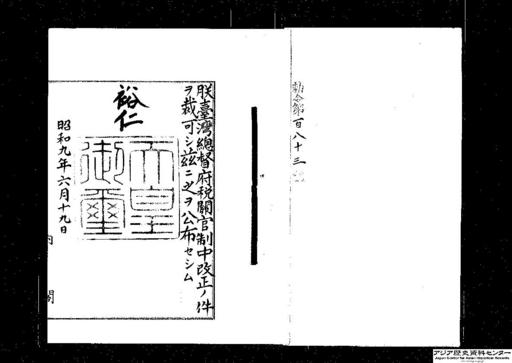 勅令第百八十三號
朕臺灣總督府税關官制中改正ノ件
ヲ裁可シ茲ニ之ヲ公布セシム
裕仁
天皇
御璽
昭和九年六月十九日
内閣
アジア歴史資料センター
Japan Center for Asian Historical Records